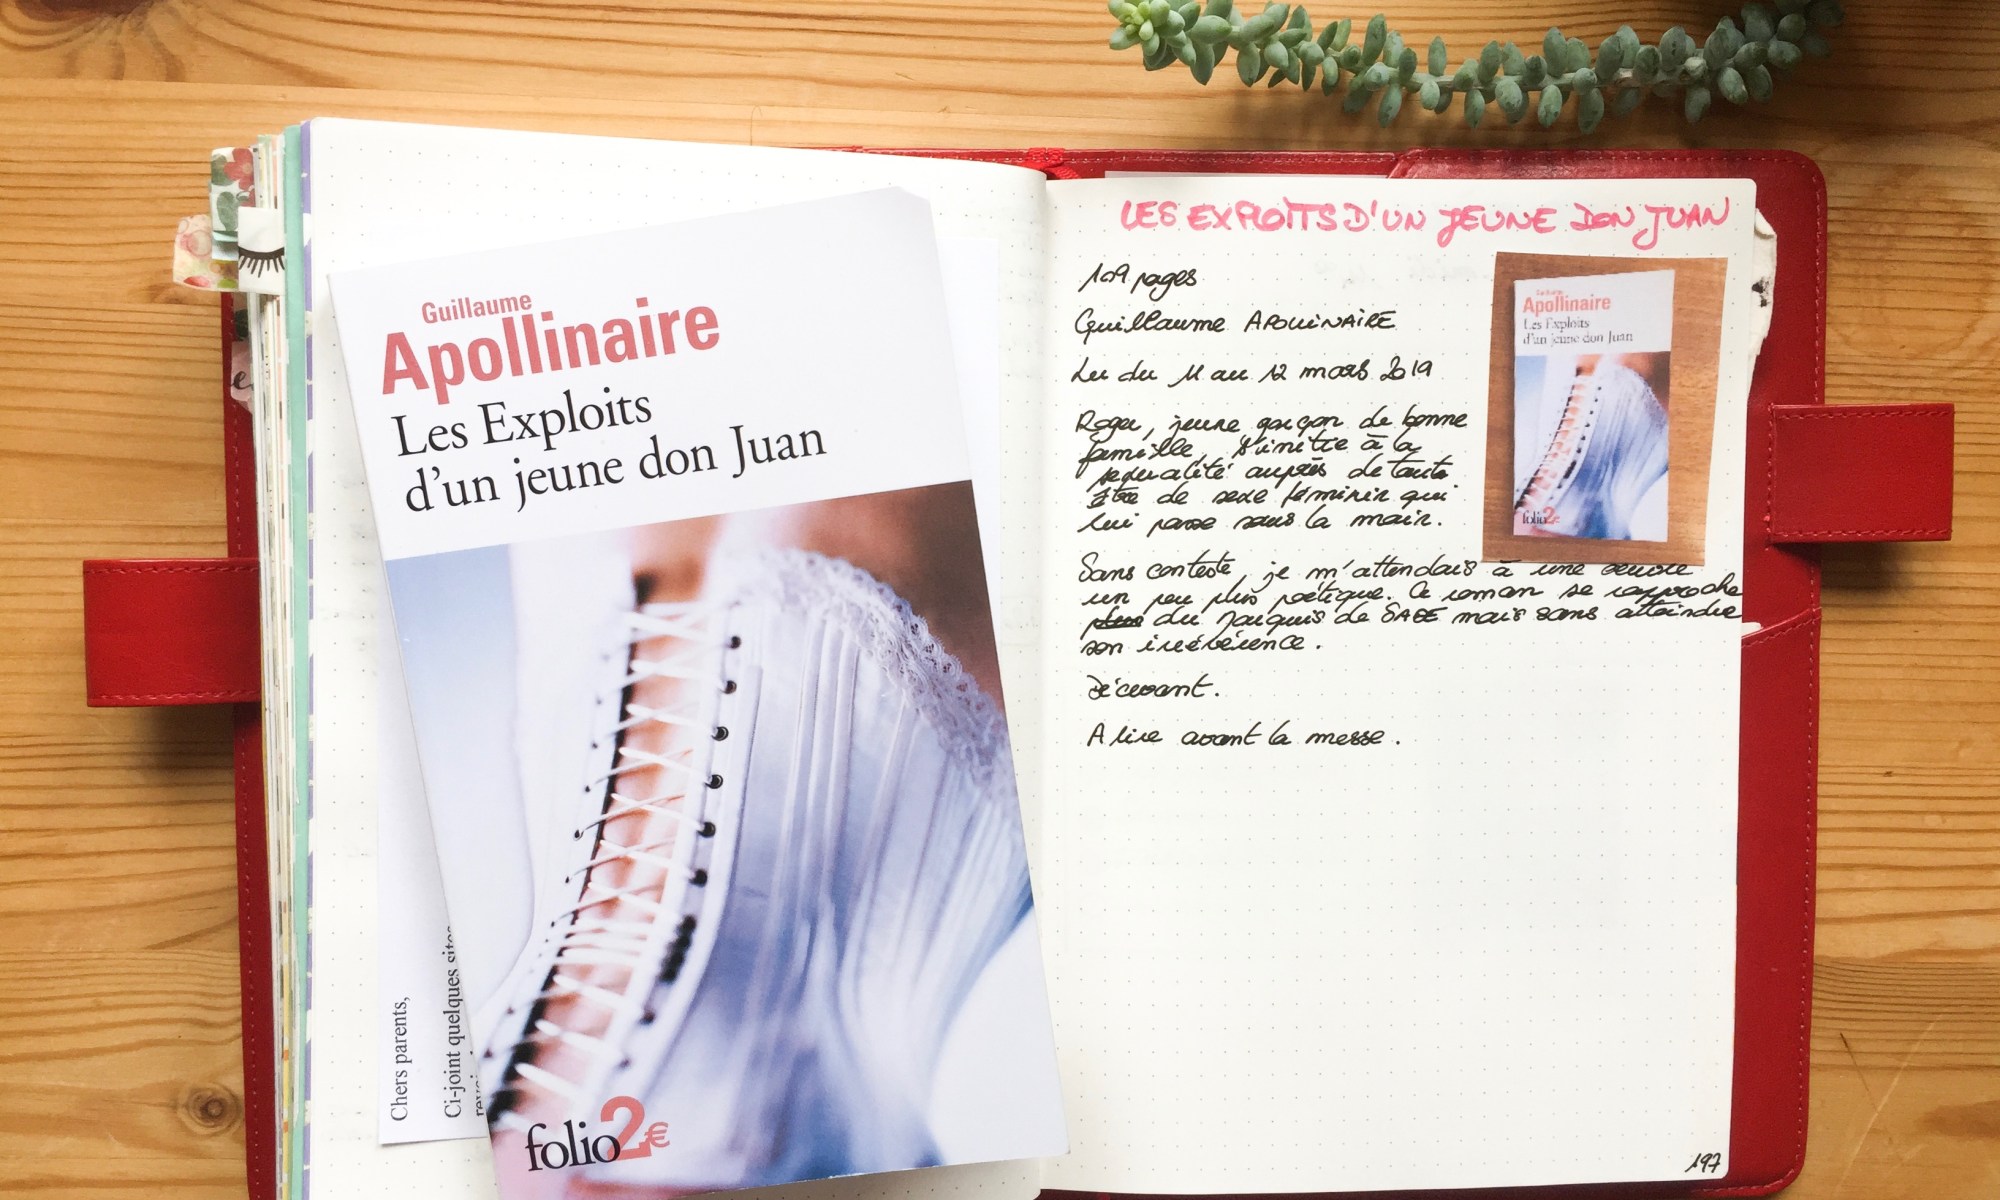 Guillaume
Apollinaire
Les Exploits
d'un jeune don Juan
folio2€
Chers parents,
Ci-joint quelques sites
LES EXPLOITS D'UN JEUNE DON JUAN
109 pages
Guillaume APOLLINAIRE
Lu du 11 au 12 mars 2019
Roger, jeune garçon de bonne
famille, s'initie à la
sexualité auprès de toute
être de sexe féminin qui
lui passe sous la main.
Sans conteste, je m'attendais à une oeuvre
un peu plus poétique. Ce roman se rapproche
plus du Marquis de SADE mais sans atteindre
son irrévérence.
Décevant.
A lire avant la messe.
Guillaume
Apollinaire
Les Exploits
d'un jeune don Juan
folio2€
197